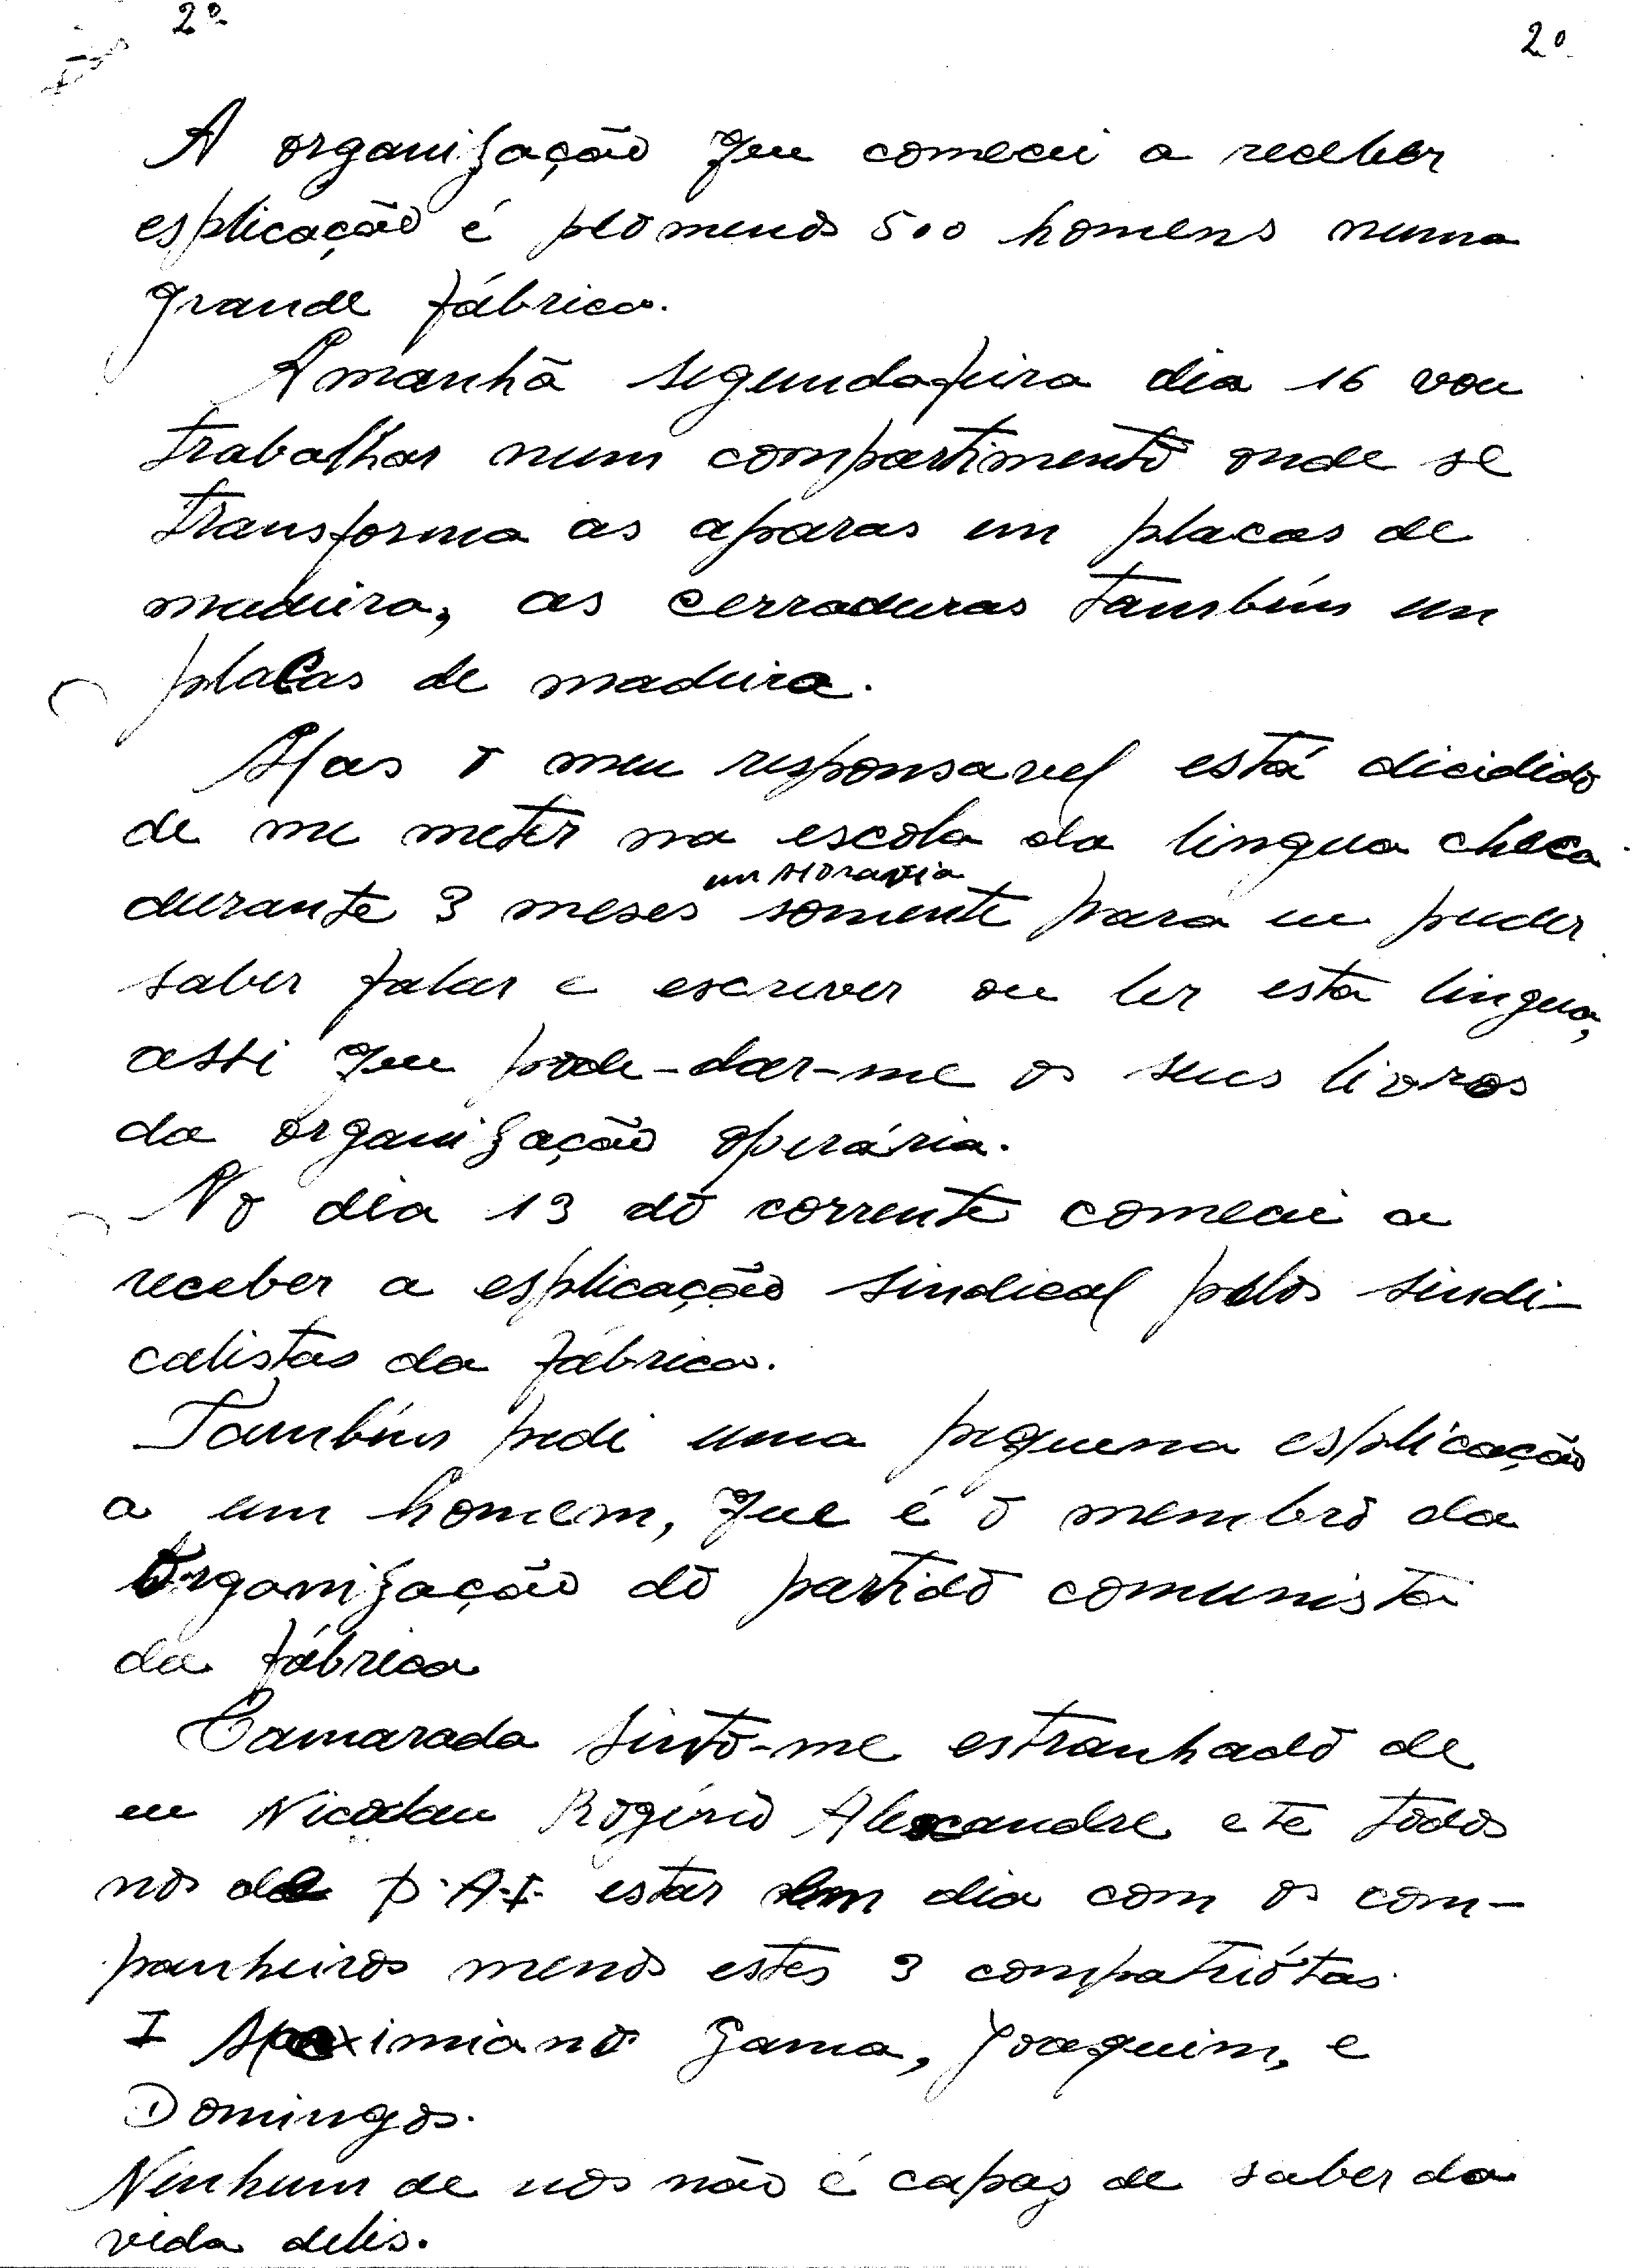 2º
2º
A organização que comecei a receber
esplicação é pèlomenos 500 homens numa
grande fábrica.
Amanhã segundafeira dia 16 vou
trabalhar num compartimento onde se
transforma as aparas em placas de
madeira, as cerraduras também em
placas de madeira.
Mas o meu responsavel está dicidido
de me meter na escola da lingua checa
em Moravia
durante 3 meses somente para eu puder
saber falar e escrever ou ler esta lingua,
assi que pode-dar-me os seus livros
da organização operária.
No dia 13 do corrente comecei a
receber a esplicação sindical pelos sindi-
calistas da fábrica.
Também pedi uma pequena esplicação
a um homem, que é o membro da
Organização do partido comunista
da fábrica
Camarada sinto-me estranhado de
eu Nicolau Rogério Alexandre ete todos
nos de P.A.I. estar em dia com os com-
panheiros menos estes 3 compatriótas.
I Maximiano Gama, Joaquim, e
Domingos.
Ninhum de nos não é capaz de saber da
vida delis.